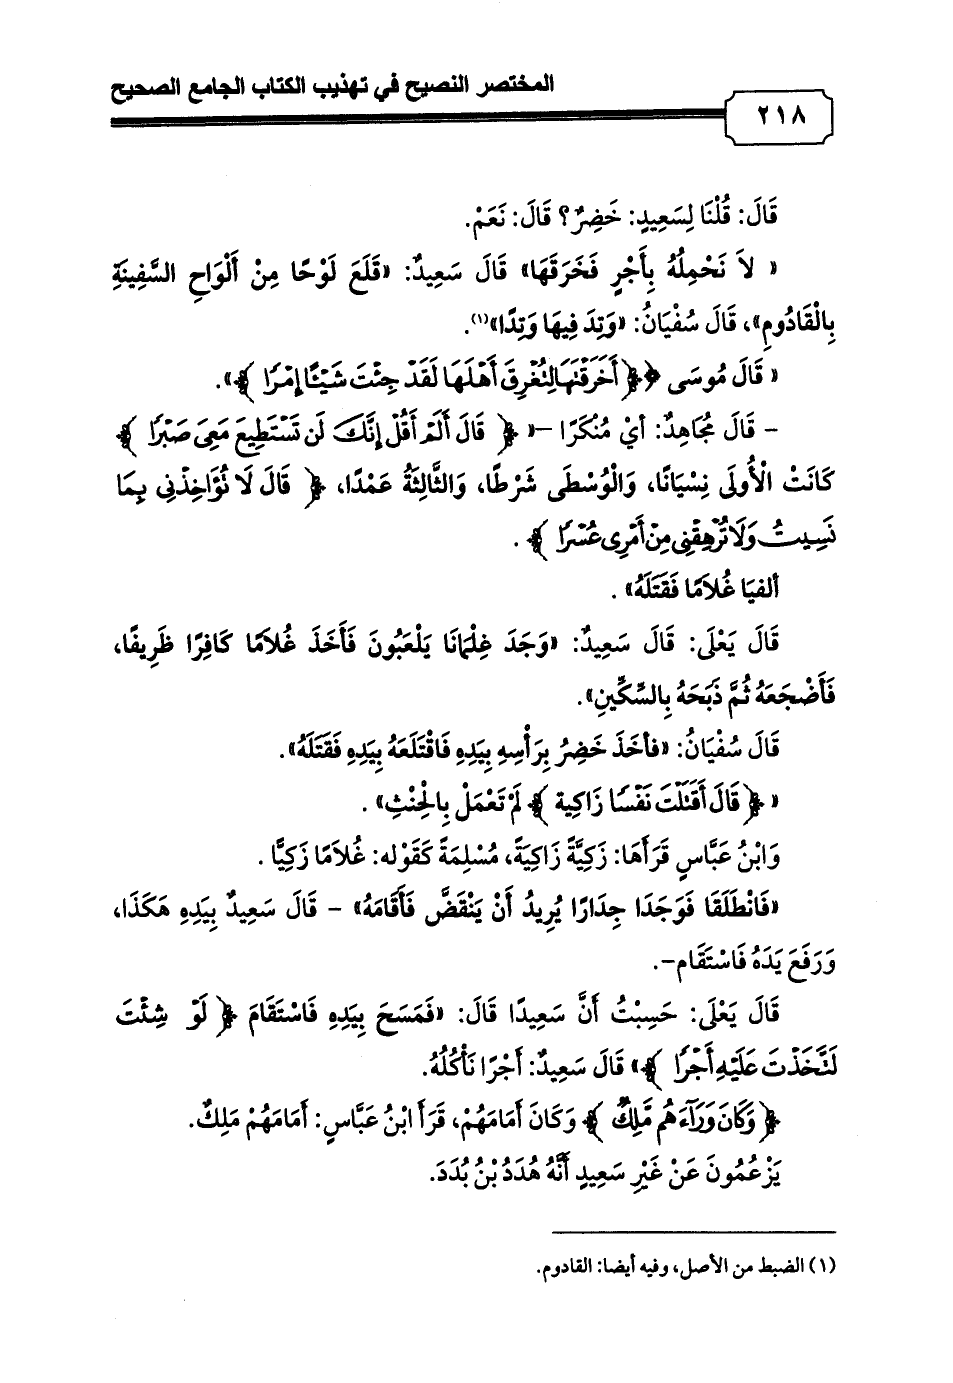 المختصر النصيح في تهذيب الكتاب الجامع الصحيح
٢١٨
قَالَ: قُلْنَا لِسَعِيدٍ: خَضِرٌ؟ قَالَ: نَعَمْ.
« لاَ نَحْمِلُهُ بِأَجْرٍ فَخَرَقَهَا» قَالَ سَعِيدٌ: «قَلَعَ لَوْحًا مِنْ أَلْوَاحِ السَّفِينَةِ
بِالْقَادُومِ»، قَالَ سُفْيَانُ: «وَتِدَ فِيهَا وَتِدًا»(١).
« قَالَ مُوسَى ﴿﴿ أَخَرَقْتَهَا لِتُغْرِقَ أَهْلَهَا لَقَدْ جِئْتَ شَيْئًا إِمْرًا ﴾».
- قَالَ مُجَاهِدٌ: أيْ مُنْكَرًا -« ﴿ قَالَ أَلَمْ أَقُلْ إِنَّكَ لَن تَسْتَطِيعَ مَعِيَ صَبْرًا ﴾
كَانَتْ الْأُولَى نِسْيَانًا، وَالْوُسْطَى شَرْطًا، وَالثَّالِثَةُ عَمْدًا، ﴿ قَالَ لَا تُؤَاخِذْنِي بِمَا
نَسِيتُ وَلَا تُرْهِقْنِي مِنْ أَمْرِي عُسْرًا ﴾ .
ألفيَا غُلاَمًا فَقَتَلَهُ» .
قَالَ يَعْلَى: قَالَ سَعِيدٌ: «وَجَدَ غِلْمَانَا يَلْعَبُونَ فَأَخَذَ غُلاَمًا كَافِرًا ظَرِيفًا،
فَأَضْجَعَهُ ثُمَّ ذَبَحَهُ بِالسِّكِّينِ».
قَالَ سُفْيَانُ: «فأخَذَ خَضِرُ بِرَأْسِهِ بِيَدِهِ فَاقْتَلَعَهُ بِيَدِهِ فَقَتَلَهُ».
« ﴿ قَالَ أَقَتَلْتَ نَفْسًا زَاكِية ﴾ لَمْ تَعْمَلْ بِالْحِنْثِ» .
وَابْنُ عَبَّاسٍ قَرَأَهَا: زَكِيَّةً زَاكِيَةً، مُسْلِمَةً كَقَوْله: غُلاَمًا زَكِيًّا .
«فَانْطَلَقَا فَوَجَدَا جِدَارًا يُرِيدُ أَنْ يَنْقَضَّ فَأَقَامَهُ» - قَالَ سَعِيدٌ بِيَدِهِ هَكَذَا،
وَرَفَعَ يَدَهُ فَاسْتَقَام-.
قَالَ يَعْلَى: حَسِبْتُ أَنَّ سَعِيدًا قَالَ: «فَمَسَحَ بِيَدِهِ فَاسْتَقَامَ ﴿ لَوْ شِئْتَ
لَتَّخَذْتَ عَلَيْهِ أَجْرًا ﴾» قَالَ سَعِيدٌ: أَجْرًا نَأْكُلُهُ.
﴿ وَكَانَ وَرَآءَهُم مَّلِكٌ ﴾ وَكَانَ أَمَامَهُمْ، قَرَأَ ابْنُ عَبَّاسٍ: أَمَامَهُمْ مَلِكٌ.
يَزْعُمُونَ عَنْ غَيْرِ سَعِيدٍ أَنَّهُ هُدَدُ بْنُ بُدَدَ.
(١) الضبط من الأصل، وفيه أيضا: القادوم.